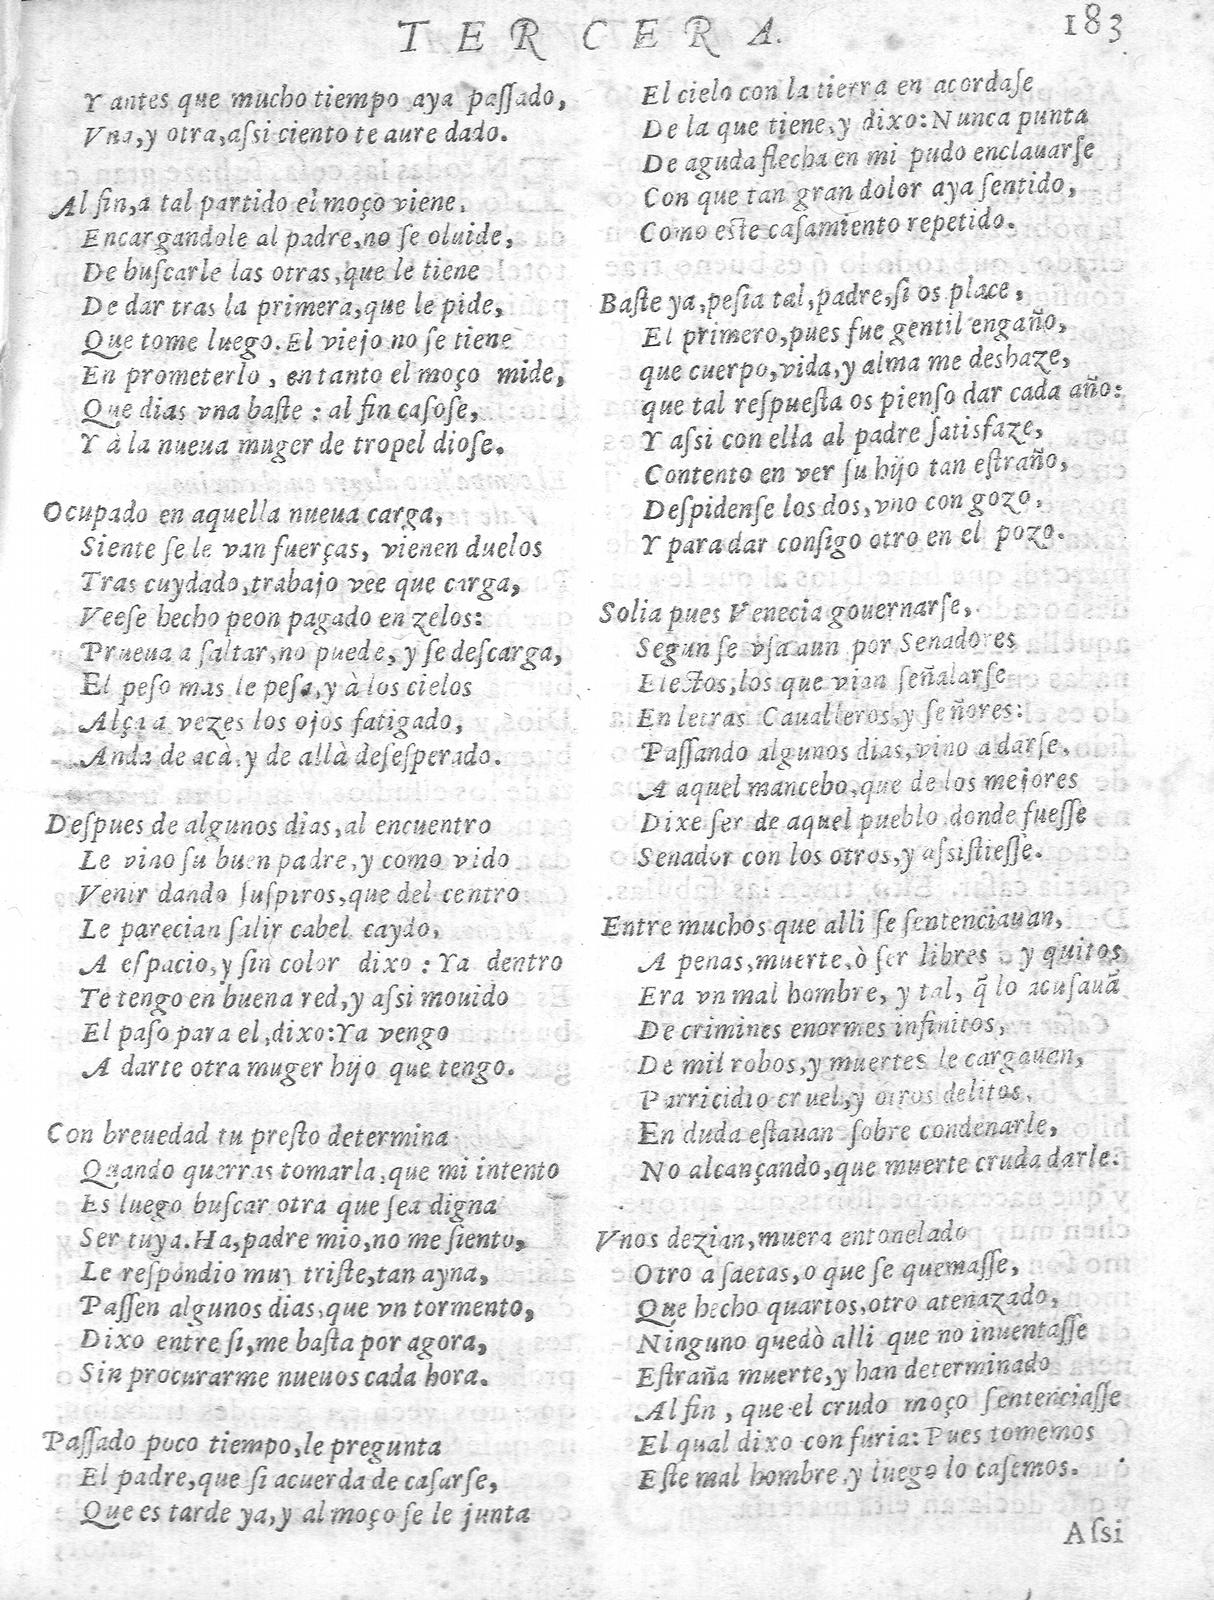 TERCERA.
183
Y antes que mucho tiempo aya paſſado,
Vna, y otra, aſsi ciento te aure dado.
Al fin, a tal partido el moço viene,
Encargandole al padre, no ſe oluide,
De buſcarle las otras, que le tiene
De dar tras la primera, que le pide,
Que tome luego. El viejo no ſe tiene
En prometerlo, entanto el moço mide,
Que dias vna baſte: al fin caſoſe,
Y à la nueua muger de tropel dioſe.
Ocupado en aquella nueua carga,
Siente ſe le van fuerças, vienen duelos
Tras cuydado, trabajo vee que carga,
Veeſe hecho peon pagado en zelos:
Prueua a ſaltar, no puede, y ſe deſcarga,
El peſo mas le peſa, y à los cielos
Alça a vezes los ojos fatigado,
Anda de acà, y de allà deſeſperado.
Deſpues de algunos dias, al encuentro
Le vino ſu buen padre, y como vido
Venir dando ſuſpiros, que del centro
Le parecian ſalir cabel caydo,
A eſpacio, y ſin color dixo: Ya dentro
Te tengo en buena red, y aſsi mouido
El paſo para el, dixo: Ya vengo
A darte otra muger hijo que tengo.
Con breuedad tu preſto determina
Quando querras tomarla, que mi intento
Es luego buſcar otra que ſea digna
Ser tuya. Ha, padre mio, no me ſiento,
Le reſpondio muy triſte, tan ayna,
Paſſen algunos dias, que vn tormento,
Dixo entre ſi, me baſta por agora,
Sin procurarme nueuos cada hora.
Paſſado poco tiempo, le pregunta
El padre, que ſi acuerda de caſarſe,
Que es tarde ya, y al moço ſe le junta
El cielo con la tierra en acordaſe
De la que tiene, y dixo: Nunca punta
De aguda flecha en mi pudo enclauarſe
Con que tan gran dolor aya ſentido,
Como eſte caſamiento repetido.
Baſte ya, peſia tal, padre, ſi os place,
El primero, pues fue gentil engaño,
que cuerpo, vida, y alma me deshaze,
que tal reſpueſta os pienſo dar cada año:
Y aſsi con ella al padre ſatisfaze,
Contento en ver ſu hijo tan eſtraño,
Deſpidenſe los dos, vno con gozo,
Y para dar conſigo otro en el pozo.
Solia pues Venecia gouernarſe,
Segun ſe vſa aun por Senadores
Electos, los que vian ſeñalarſe
En letras Caualleros, y ſeñores:
Paſſando algunos dias, vino a darſe,
A aquel mancebo, que de los mejores
Dixe ſer de aquel pueblo donde fueſſe
Senador con los otros, y aſsiſtieſſe.
Entre muchos que alli ſe ſentenciauan,
A penas, muerte, ò ſer libres y quitos
Era vn mal hombre, y tal, q̃ lo acuſauã
De crimines enormes infinitos,
De mil robos, y muertes le cargauan,
Parricidio cruel, y otros delitos,
En duda eſtauan ſobre condenarle,
No alcançando, que muerte cruda darle.
Vnos dezian, muera entonelado
Otro a ſaetas, o que ſe quemaſſe,
Que hecho quartos, otro atenazado,
Ninguno quedò alli que no inuentaſſe
Eſtraña muerte, y han determinado
Al fin, que el crudo moço ſentenciaſſe
El qual dixo con furia: Pues tomemos
Eſte mal hombre y luego lo caſemos.
Aſsi